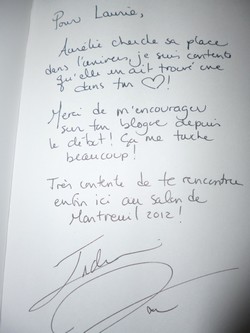 Pour Laurie,
Aurélie cherche sa place
dans l'univers, je suis contente
qu'elle en ait trouvé une
dans ton ♡!
Merci de m'encourager
sur ton blogue depuis
le début! Ça me touche
beaucoup!
Très contente de te rencontrer
enfin ici au salon de
Montreuil 2012!